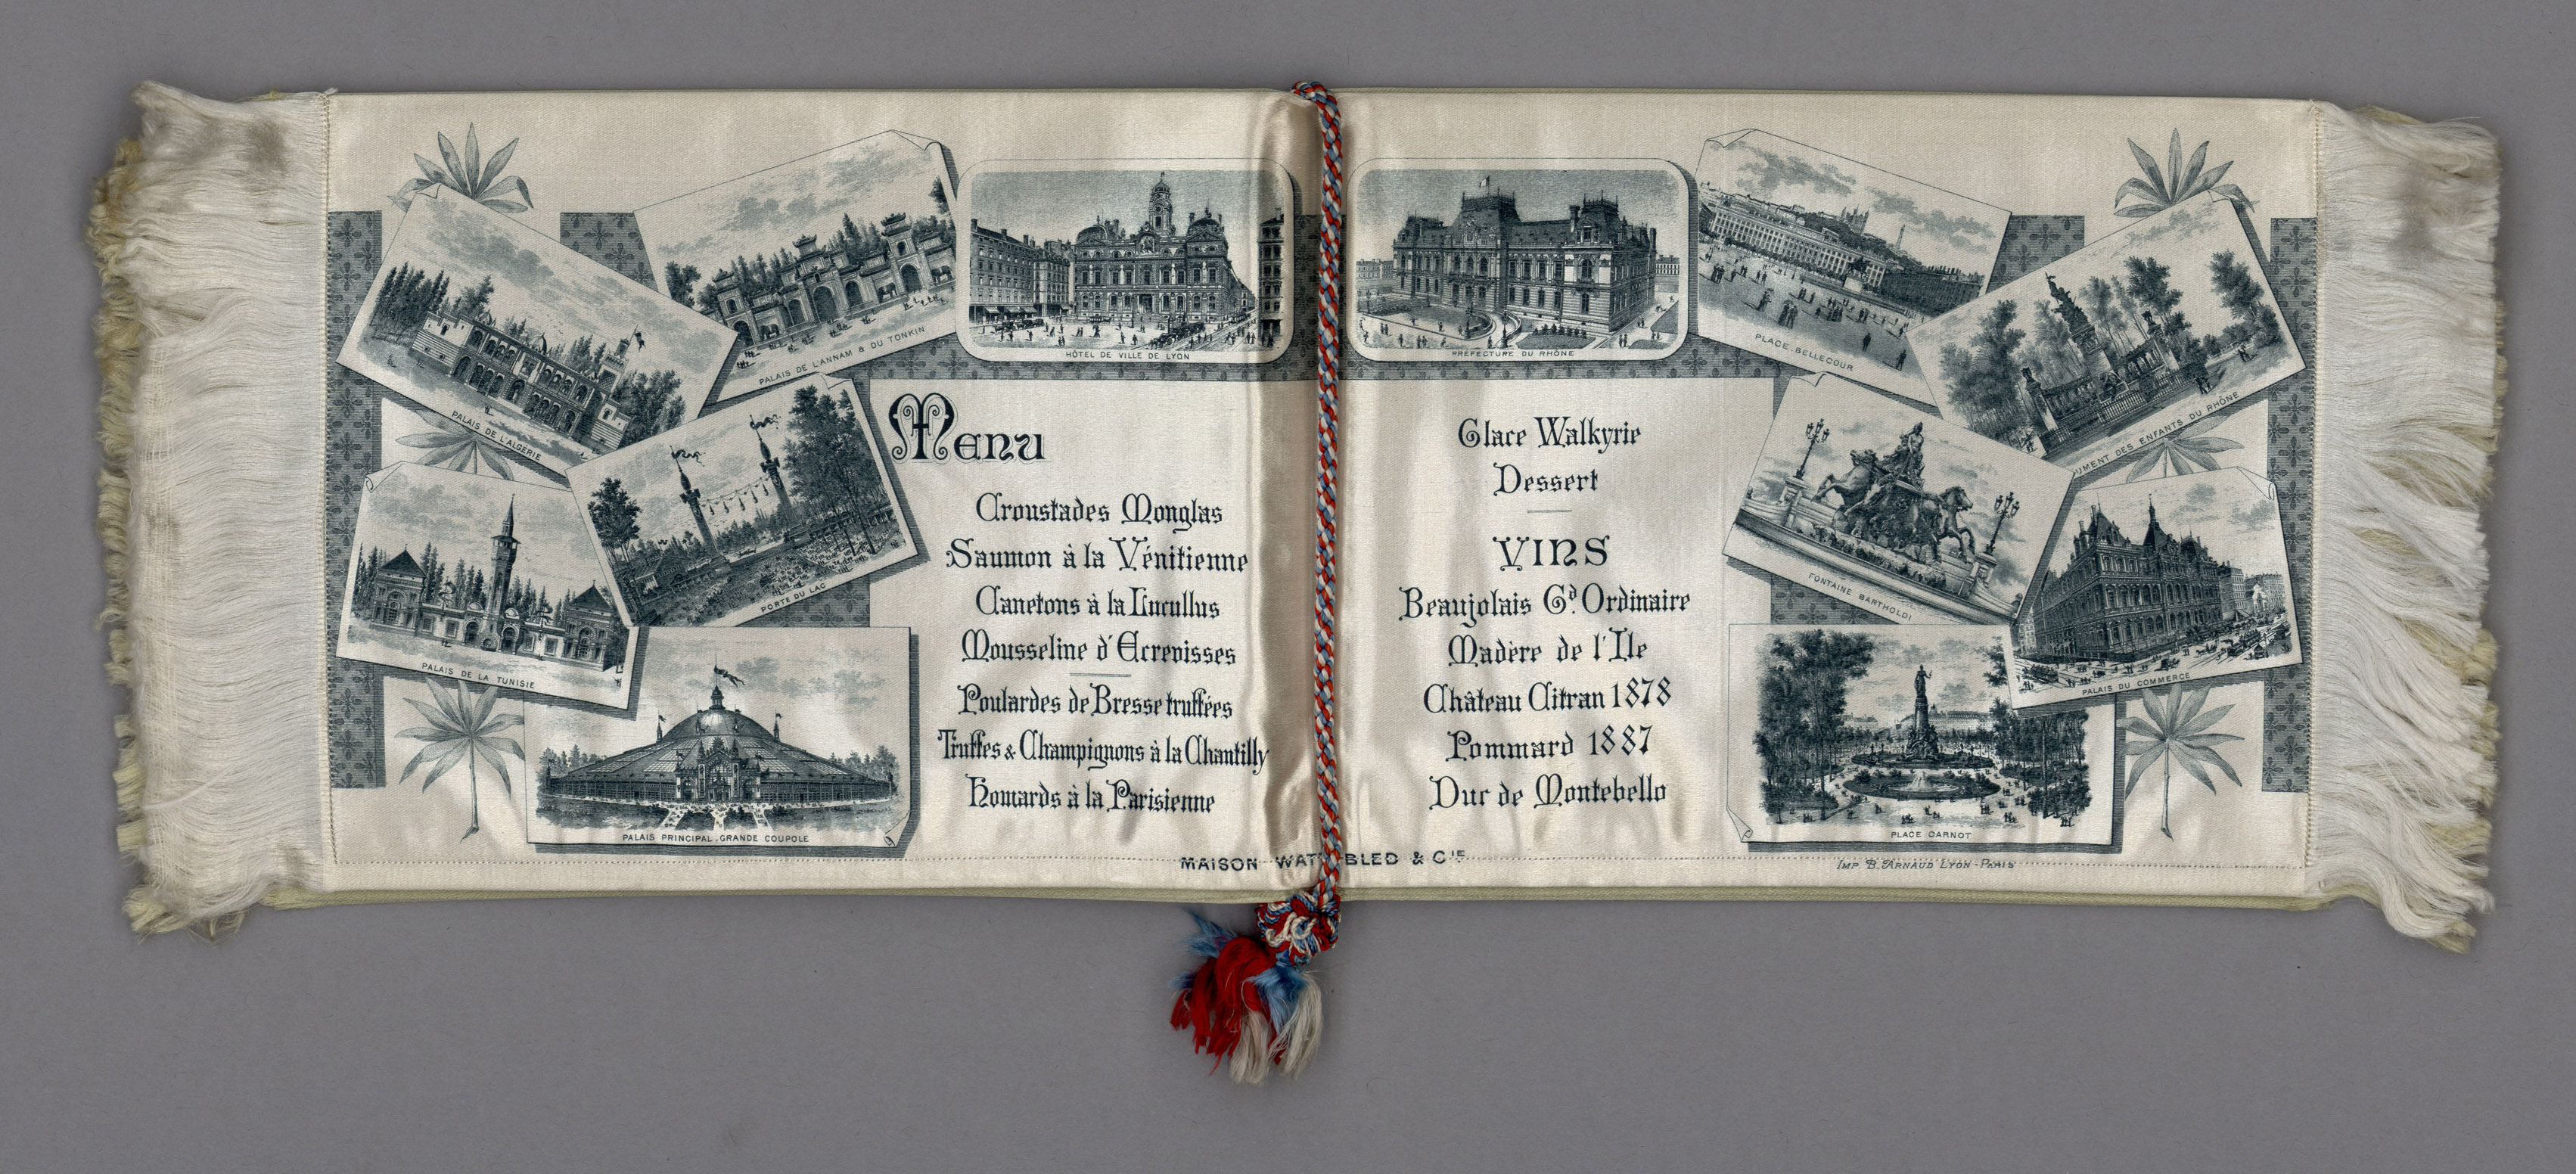 PALAIS DE L'ALGÉRIE
PALAIS DE L'ANNAM & DU TONKIN
HÔTEL DE VILLE DE LYON
PALAIS DE LA TUNISIE
PORTE DU LAC
PALAIS PRINCIPAL. GRANDE COUPOLE
Menu
Croustades Monglas
Saumon à la Vénitienne
Canetons à la Lucullus
Mousseline d'Ecrevisses
Poulardes de Bresse truffées
Truffes & Champignons à la Chantilly
Homards à la Parisienne
PRÉFECTURE DU RHÔNE
PLACE BELLECOUR
UMENT DES ENFANTS DU RHÔNE
FONTAINE BARTHOLDI
PALAIS DU COMMERCE
PLACE CARNOT
Glace Walkyrie
Dessert
VINS
Beaujolais Gd. Ordinaire
Madère de l'Ile
Château Citran 1878
Pommard 1887
Duc de Montebello
MAISON WAT BLED & CIE
IMP. B. ARNAUD LYON-PARIS